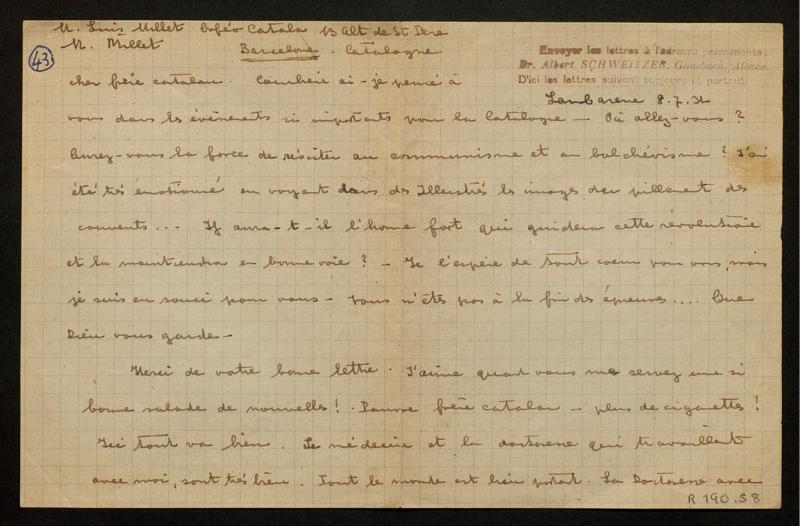 M. Luis Millet Orfeó Catala 13 Alt de St Pere
M. Millet Barcelone. Catalogne
43
Envoyer les lettres à l'adresse permanente:
Dr. Albert SCHWEITZER, Gunsbach, Alsace.
D'ici les lettres suivent toujours et partout.
Lambarene 8.7.31
cher frère catalan. Combien ai-je pensé à
vous dans les événements si importants pour la Catalogne — Où allez-vous?
Aurez-vous la force de résister au communisme et au bolchévisme? J'ai
été très émotionné en voyant dans des Illustrés les images du pillement des
couvents... Y aura-t-il l'home fort qui guidera cette révolution
et la maintiendra en bonne voie? — Je l'espère de tout coeur pour vous, mais
je suis en souci pour vous — vous n'êtes pas à la fin des épreuves.... Que
Dieu vous garde —
Merci de votre bonne lettre. J'aime quand vous me servez une si
bonne salade de nouvelles! Pauvre frère catalan — plus de cigarettes!
Ici tout va bien. Le médecin et la doctoresse qui travaillent
avec moi, sont très bien. Tout le monde est bien portant. La Doctoresse avec
R 190.58